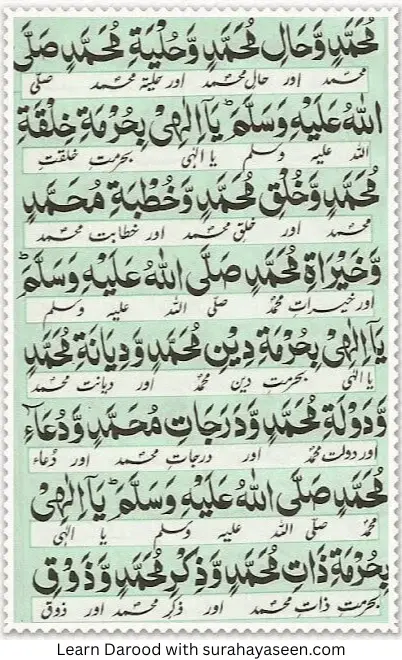 مُحَمَّدٍ وَّحَالِ مُحَمَّدٍ وَّحُلْيَةِ مُحَمَّدٍ صَلَّى
محمد اور حال محمد اور حلیۃ محمد صلی
اللهُ عَلَيْهِ وَسَلَّمَ ؕ يَآ اِلٰهِىْ بِحُرْمَةِ خِلْقَةِ
اللہ علیہ وسلم یا الٰہی بحرمتِ خلقتِ
مُحَمَّدٍ وَّخُلْقِ مُحَمَّدٍ وَّخُطْبَةِ مُحَمَّدٍ
محمد اور خلق محمد اور خطابت محمد
وَّخَيْرَاةِ مُحَمَّدٍ صَلَّى اللهُ عَلَيْهِ وَسَلَّمَ ؕ
اور خیرات محمد صلی اللہ علیہ وسلم
يَآ اِلٰهِىْ بِحُرْمَةِ دِيْنِ مُحَمَّدٍ وَّدِيَانَةِ مُحَمَّدٍ
یا الٰہی بحرمتِ دین محمد اور دیانت محمد
وَّدَوْلَةِ مُحَمَّدٍ وَّدَرَجَاتِ مُحَمَّدٍ وَّدُعَآءِ
اور دولت محمد اور درجاتِ محمد اور دُعاء
مُحَمَّدٍ صَلَّى اللهُ عَلَيْهِ وَسَلَّمَ ؕ يَآ اِلٰهِىْ
محمد صلی اللہ علیہ وسلم یا الٰہی
بِحُرْمَةِ ذَاتِ مُحَمَّدٍ وَّذِكْرِ مُحَمَّدٍ وَّذَوْقِ
بحرمتِ ذاتِ محمد اور ذکرِ محمد اور ذوق
Learn Darood with surahayaseen.com